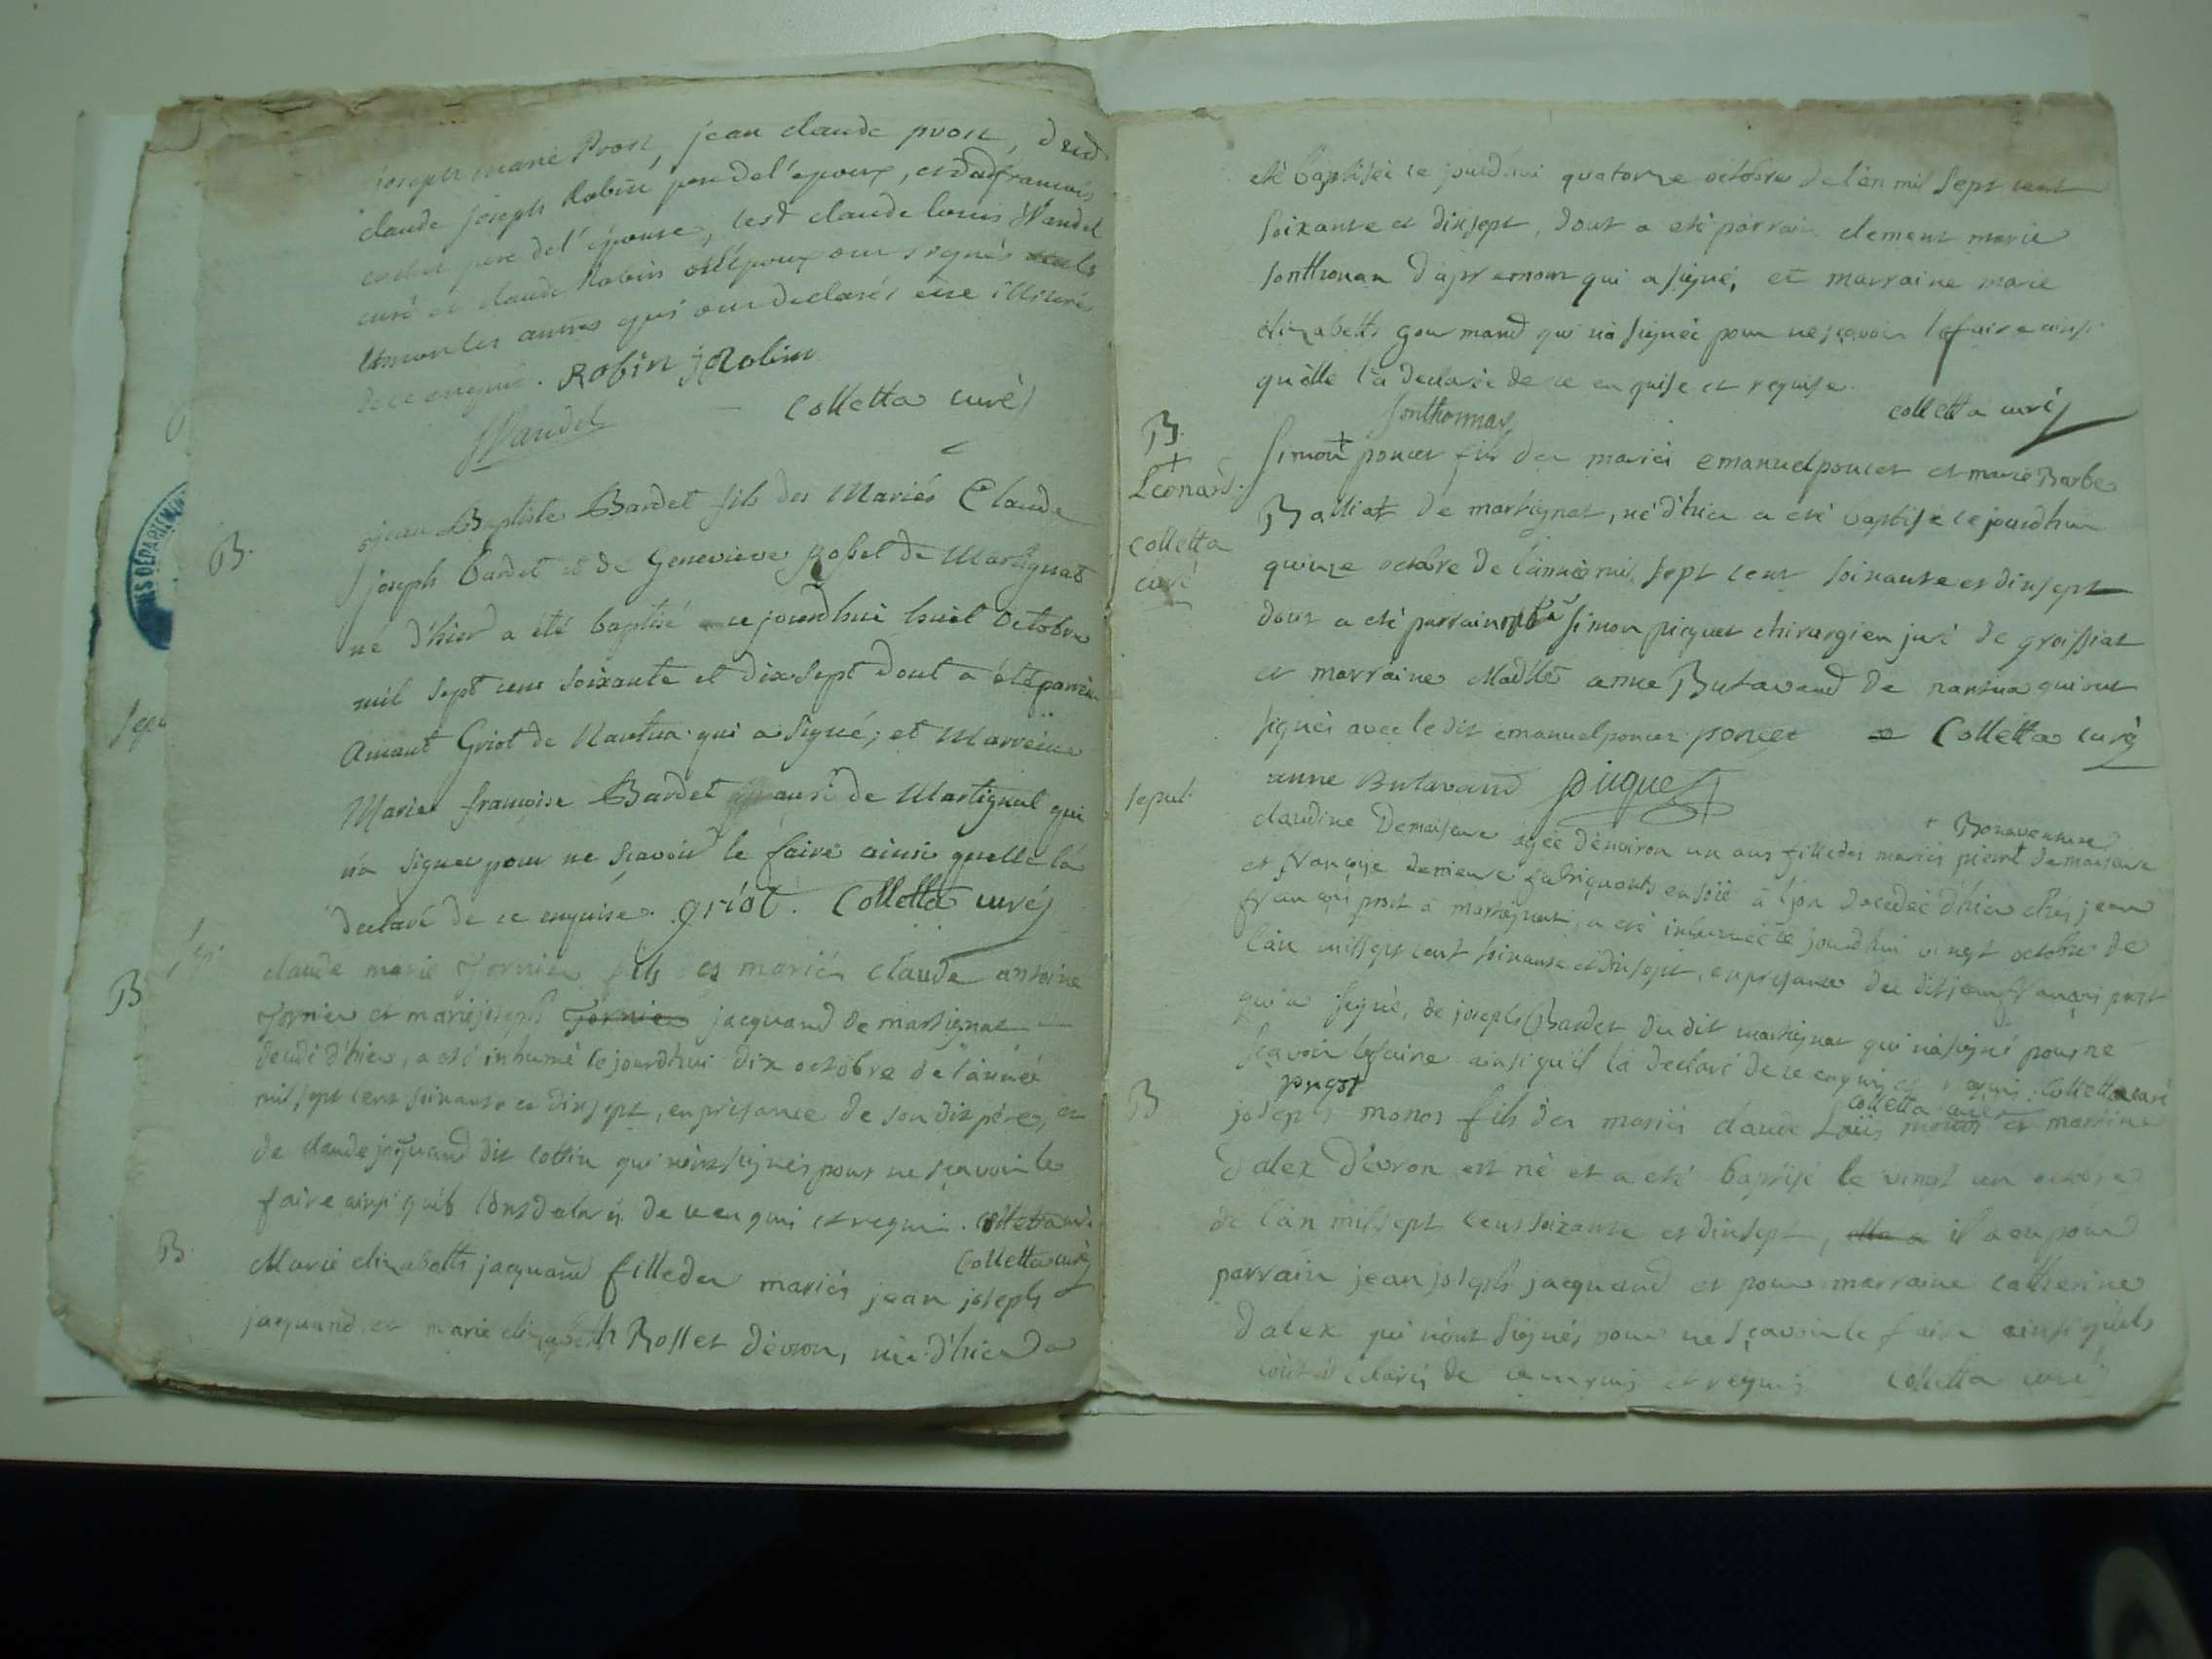 joseph marie Prost, jean claude prost, dud
claude joseph Robin pere de l'epoux, et dud françois
pere de l'épouse, led claude louis Vandel
curé et claude Robin et l'epoux ont signés
et non les autres qui ont declarés être illiterés
de ce enquis. Robin j Robin
Vandel Colletta curé
B. jean Baptiste Bardet fils des Mariés Claude
joseph bardet et de Genevieve gobet de Martignat
né d'hier a été baptisé ce jourdhui huit Octobre
mil sept cent soixante et dix sept dont a été parrein
Amant Griot de Nantua qui a signé; et Marreine
Marie françoise Bardet aussi de Martignat qui
n'a signer pour ne sçavoir le faire ainsi quelle la
declaré de ce enquise. griot. Colletta curé
B sep: claude marie Tornier fils des mariés claude antoine
Tornier et marie joseph Tornier jacquand de martignat
decedé d'hier, a eté inhumé ce jourdhui dix octobre de l'année
mil sept cent soixante et dixsept, en présance de son dit père, et
de claude jacquand dit cottin qui n'ont signés pour ne sçavoir le
faire ainsi quils l'ont declaré de ce enquis et requis. Colletta curé
Colletta curé
B. Marie elizabeth jacquand fille des mariés jean joseph
jacquand, et marie elizabeth Rosset d'evron, née d'hier a
eté baptisée ce jourdhui quatorze octobre de l'an mil sept cent
soixante et dixsept, dont a eté parrain clement marie
sonthonax d'apremont qui a signé, et marraine marie
elizabeth gourmand qui n'a signée pour ne sçavoir le faire ainsi
qu'elle l'a declarée de ce enquise et requise.
sonthonnax colletta curé
B. Simon + poncet fils des mariés emanuel poncet et marie Barbe
+ Léonard. Balliat de martignat, né d'hier a eté baptisé ce jourdhui
colletta curé quinze octobre de l'année mil sept cent soixante et dixsept
dont a eté parrain Simon picquet chirurgien juré de groissiat
et marraine Madlle anne Butavand de nantua qui ont
signés avec le dit emanuel poncet. poncet Colletta curé
anne Butavand piquet
sepul: + Bonaventure
claudine Demaisene agée d'environ un ans fille des mariés pierre + demaisene
et françoise derrieux fabriquants en soïe à lÿon decedée d'hier chés jean
françois prost à martignat, a eté inhumée ce jourdhui vingt octobre de
l'an mil sept cent soixante et dixsept, en présance du dit jean françois prost
qui a signé, de joseph Bardet du dit martignat qui n'a signé pour ne
sçavoir le faire ainsi qu'il l'a declaré de ce enquis et requis. Colletta curé
progt colletta curé
B joseph monos fils des mariés claude Loüis monos et martine
Dalex d'evron est né et a eté baptisé le vingt un octobre
de l'an mil sept cent soixante et dixsept, elle a il a eu pour
parrain jean joseph jacquand et pour marraine catherine
Dalex qui n'ont signés pour ne sçavoir le faire ainsi quils
l'ont declarés de ce enquis et requis Colletta curé